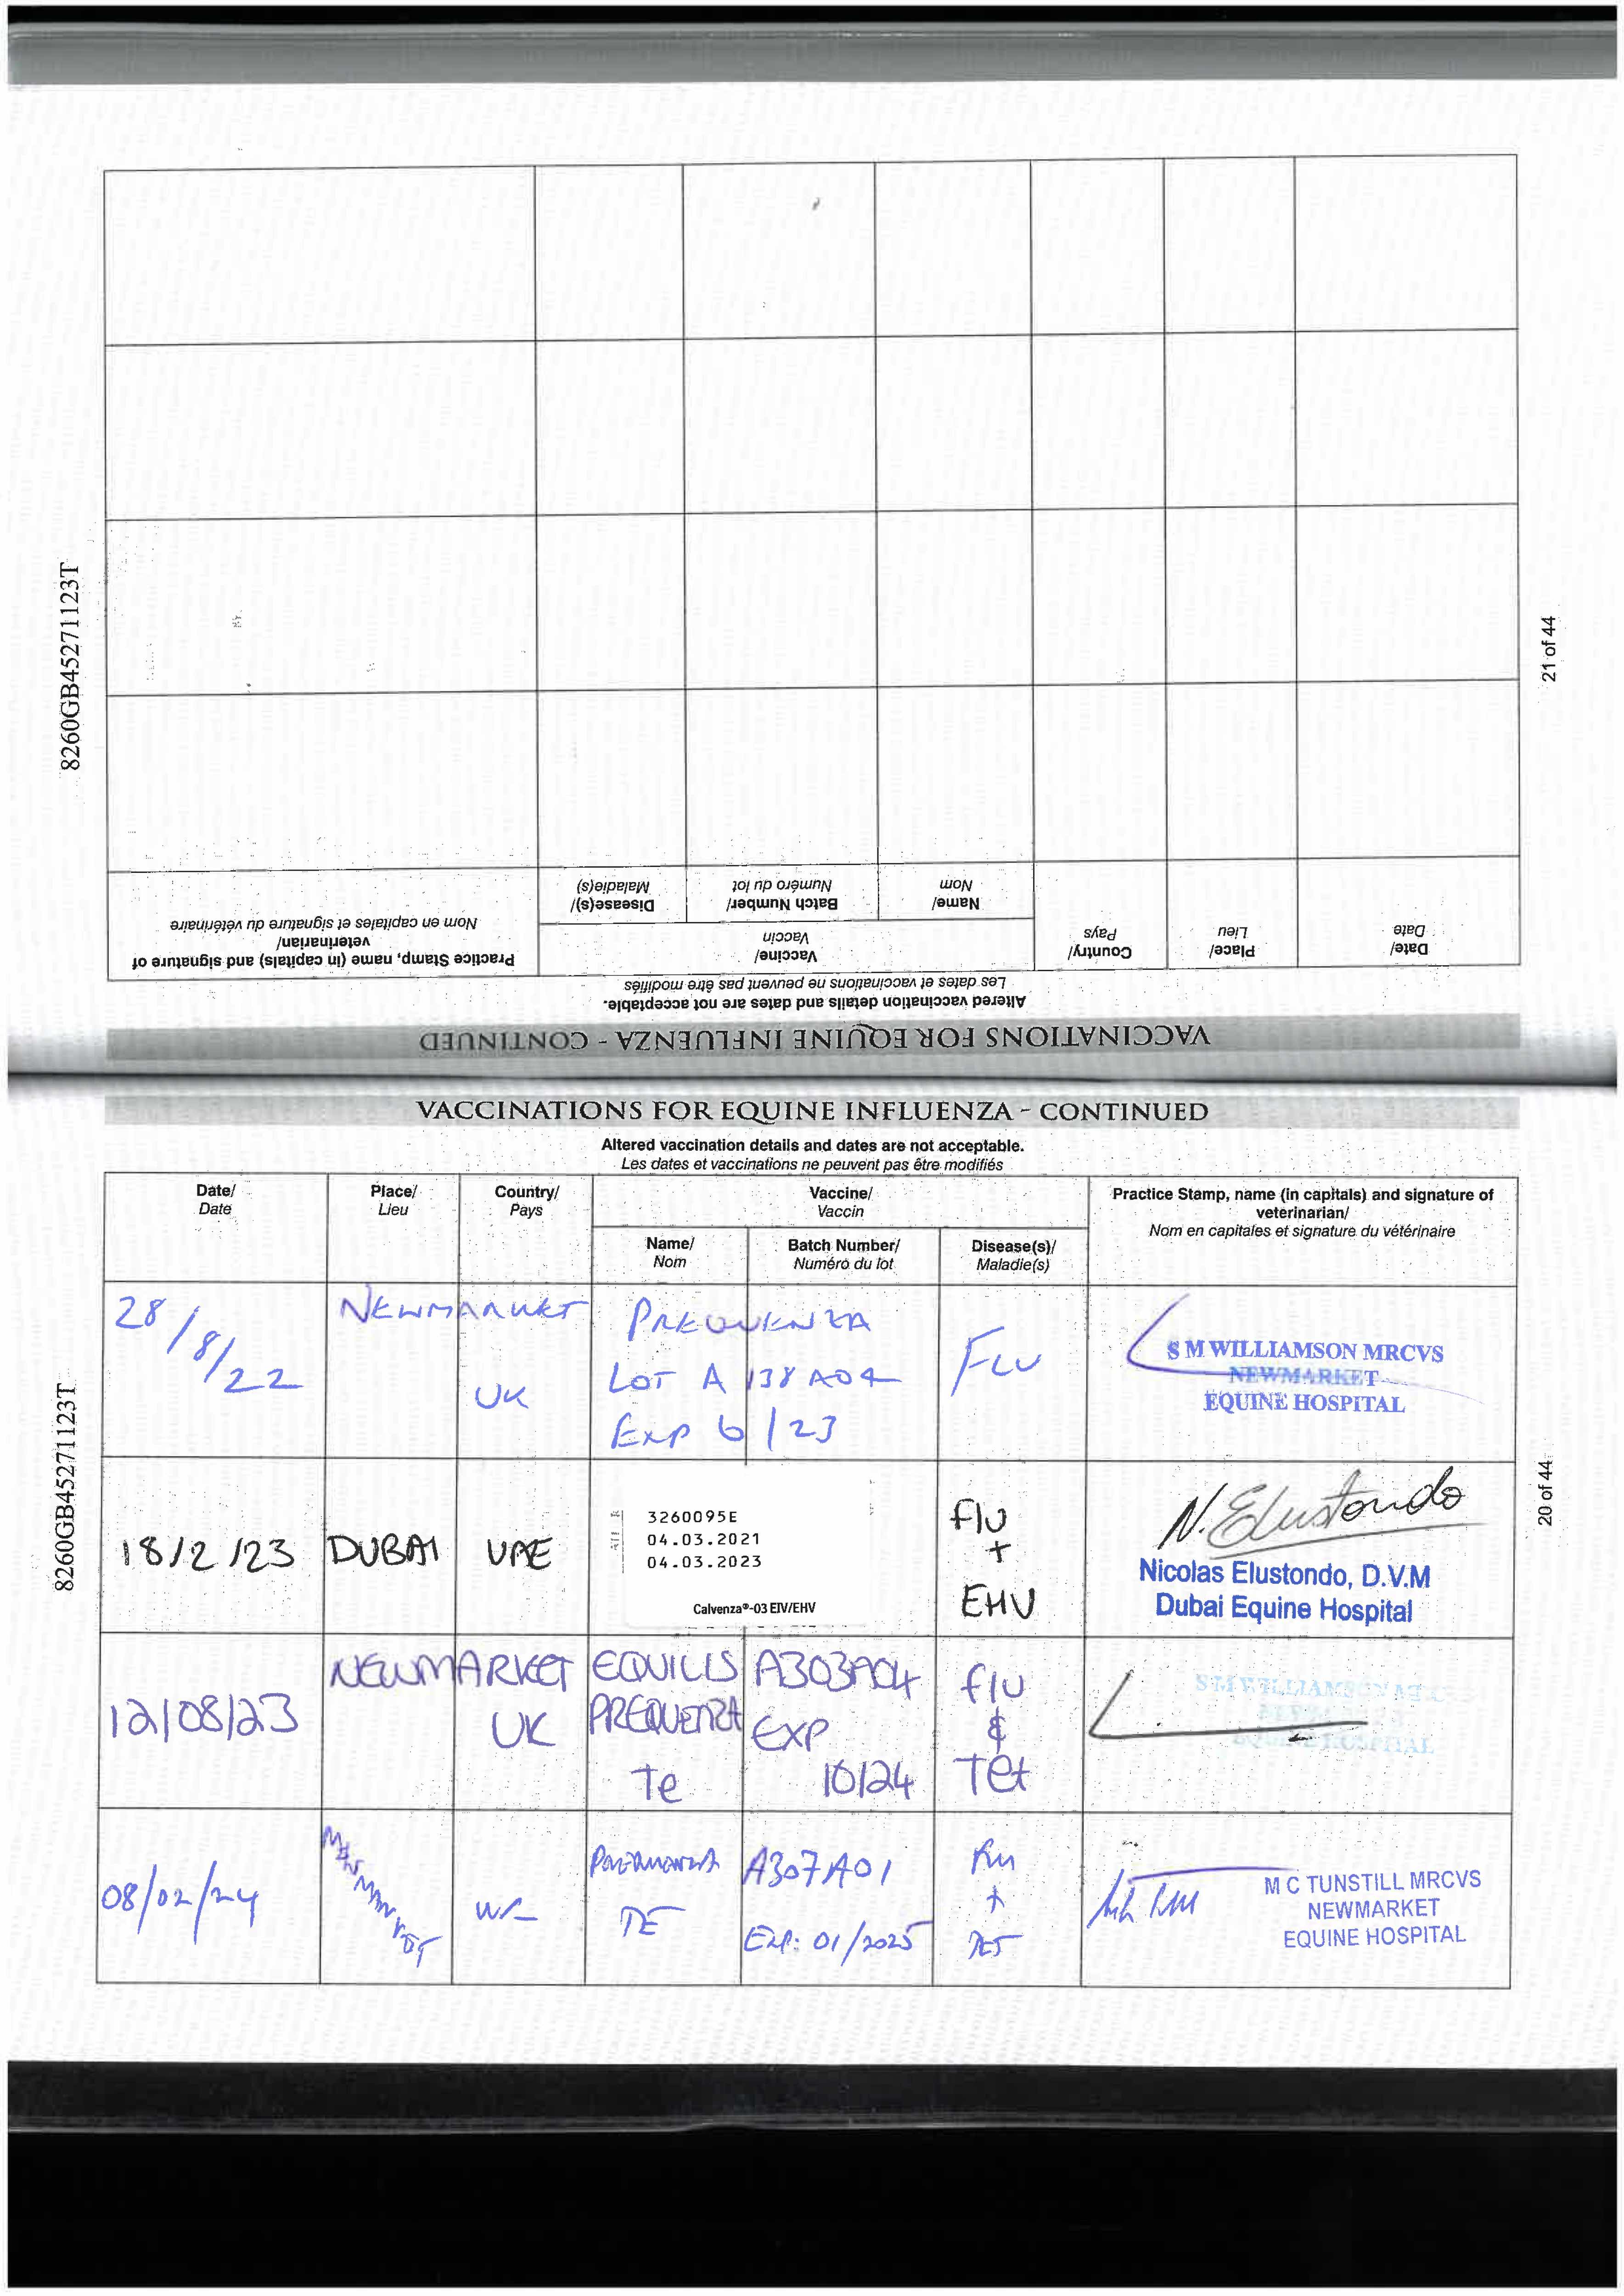 8260GB45271123T
21 of 44
VACCINATIONS FOR EQUINE INFLUENZA - CONTINUED
Altered vaccination details and dates are not acceptable.
Les dates et vaccinations ne peuvent pas être modifiés
Date/
Date
Place/
Lieu
Country/
Pays
Vaccine/
Vaccin
Name/
Nom
Batch Number/
Numéro du lot
Disease(s)/
Maladie(s)
Practice Stamp, name (in capitals) and signature of
veterinarian/
Nom en capitales et signature du vétérinaire
VACCINATIONS FOR EQUINE INFLUENZA - CONTINUED
Altered vaccination details and dates are not acceptable.
Les dates et vaccinations ne peuvent pas être modifiés
Date/
Date
Place/
Lieu
Country/
Pays
Vaccine/
Vaccin
Name/
Nom
Batch Number/
Numéro du lot
Disease(s)/
Maladie(s)
Practice Stamp, name (in capitals) and signature of
veterinarian/
Nom en capitales et signature du vétérinaire
8260GB45271123T
20 of 44
28/8/22
NEWMARKET
UK
PREQUENZA
LOT A 138 A04
EXP 6/23
FLU
S M WILLIAMSON MRCVS
NEWMARKET
EQUINE HOSPITAL
18/2/23
DUBAI
UAE
3260095E
04.03.2021
04.03.2023
Calvenza®-03 EIV/EHV
flu
+
EHV
N. Elustondo
Nicolas Elustondo, D.V.M
Dubai Equine Hospital
12/08/23
NEWMARKET
UK
EQUILIS
PREQUENZA
Te
A303A04
EXP
10/24
flu
&
Tet
EQUINE HOSPITAL
08/02/24
NEWMARKET
UK
PREQUENZA
TE
A307A01
Exp: 01/2025
Flu
+
TET
M C TUNSTILL MRCVS
NEWMARKET
EQUINE HOSPITAL